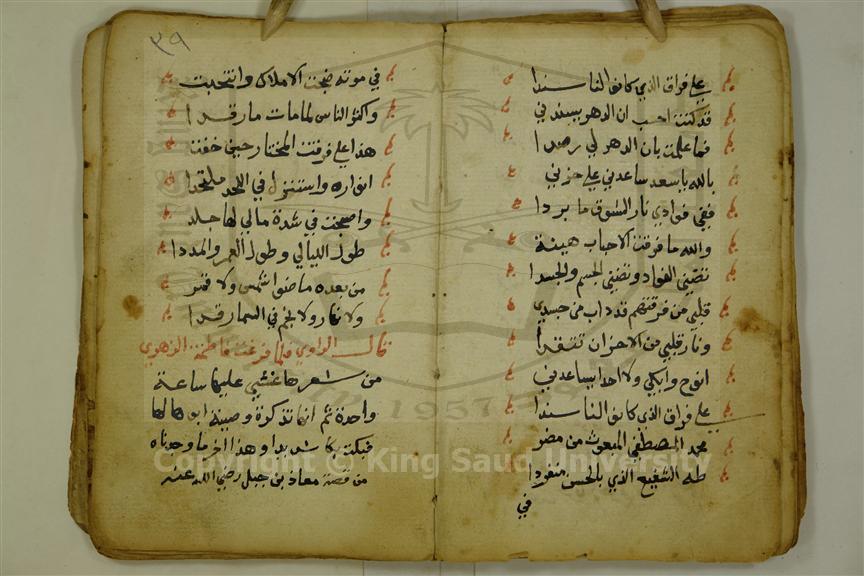 على فراق الذي كانوا لنا سندا
قد كنت احسب ان الدهر يسعدني
فما علمت بان الدهر لي رصدا
بالله يا سعد ساعدني على حزني
ففي فوادي نار الشوق ما بردا
والله ما فرقت الاحباب هينة
تضني الفواد وتضني الجسم والجسدا
قلبي من فرقتهم قد داب من جسدي
ونار قلبي من الاحزان تتقدا
انوح وابكي ولا احدا يساعدني
على فراق الذي كانوا لنا سندا
محمد المصطفى المبعوث من مضر
طه الشفيع الذي بالحسن منفردا
في
٣٩
في موته ضجت الاملاك وانتحبت
واكثر الناس لما مات ما رقدا
هذا على فرقت المختار حين خفت
انواره واستنزل في اللحد ملتحدا
واصبحت في شدة مالي لها جلد
طول الليالي وطول العمر والمددا
من بعده ما ضوا شمس ولا قمر
ولا نهار ولا نجم في السما رقدا
قال الراوي فلما فرغت فاطمة الزهري
من شعرها غشي عليها ساعة
واحدة ثم انها تذكرة وصية ابوها لها
فبكت بكا شديدا وهذا اخر ما وجدناه
من قصة معاذ بن جبل رضي الله عنه
Copyright © King Saud University
1957